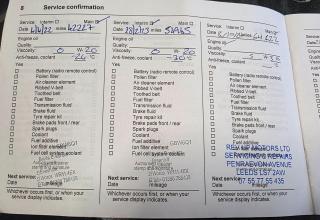 8 Service confirmation
Service: Interim ☐ Main
Date 4/4/22 miles 42227
Engine oil
Quality:
Viscosity: 0 W- 20
Anti-freeze, coolant -26 °C
Yes
Battery (radio remote control)
Pollen filter
Air cleaner element
Ribbed V-belt
Toothed belt
Fuel filter
Transmission fluid
Brake fluid
Tyre repair kit
Brake pads front / rear
Spark plugs
Coolant
Fuel additive
Ion filter element
Fuel cell system coolant
Next service:
Date
Whichever occurs first, or when your
service display indicates.
Service: Interim Main ☐
Date miles 51965
Engine oil
Quality:
Viscosity: 0 W- 20
Anti-freeze, coolant -30 °C
Yes
Battery (radio remote control)
Pollen filter
Air cleaner element
Ribbed V-belt
Toothed belt
Fuel filter
Transmission fluid
Brake fluid
Tyre repair kit
Brake pads front / rear
Spark plugs
Coolant
Fuel additive
Ion filter element
Fuel cell system coolant
Next service:
Date mileage
Whichever occurs first, or when your
service display indicates.
Service: Interim ☐
Date
Engine oil
Quality
Viscosity:
Anti-freeze, coolant
Yes
Battery (radio remote control)
Pollen filter
Air cleaner element
Ribbed V-belt
Toothed belt
Fuel filter
Transmission fluid
Brake fluid
Tyre repair kit
Brake pads front / rear
Spark plugs
Coolant
Fuel additive
MOTORS LTD
SERVICING & REPAIRS
PENRAEVON AVENUE
LEEDS LS7 2AW
Next service:
Date mileage
Whichever occurs first, or when your
service display indicates.